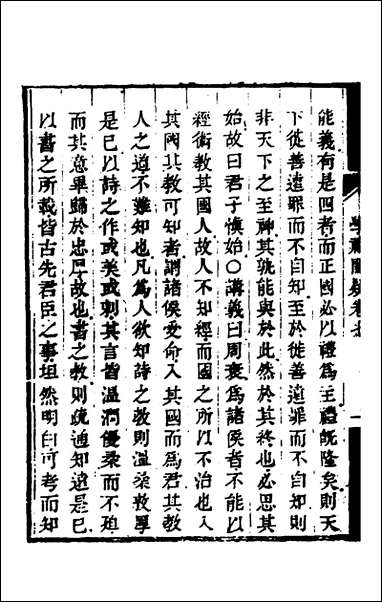 能義有是四者而正國必以禮爲主禮旣隆矣則天
下從善遠罪而不自知至於徙善遠罪而不自知則
非天下之至神其孰能與於此然於其終也必思其
始故曰君子愼始○講義曰周衰爲諸侯者不能以
經術教其國人故人不知經而國之所以不治也入
其國其教可知者謂諸侯受命入其國而爲君其教
人之道不難知也凡爲人欲知詩之教則溫柔敦厚
是已以詩之作或美或刺其言皆溫潤優柔而不迫
而其意畢歸於忠厚故也書之教則疏通知遠是已
以書之所載皆古先君臣之事坦然明白可考而知
學禮闕疑卷七
一